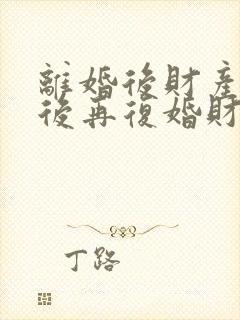 離婚後財產
後再復婚財
丁路